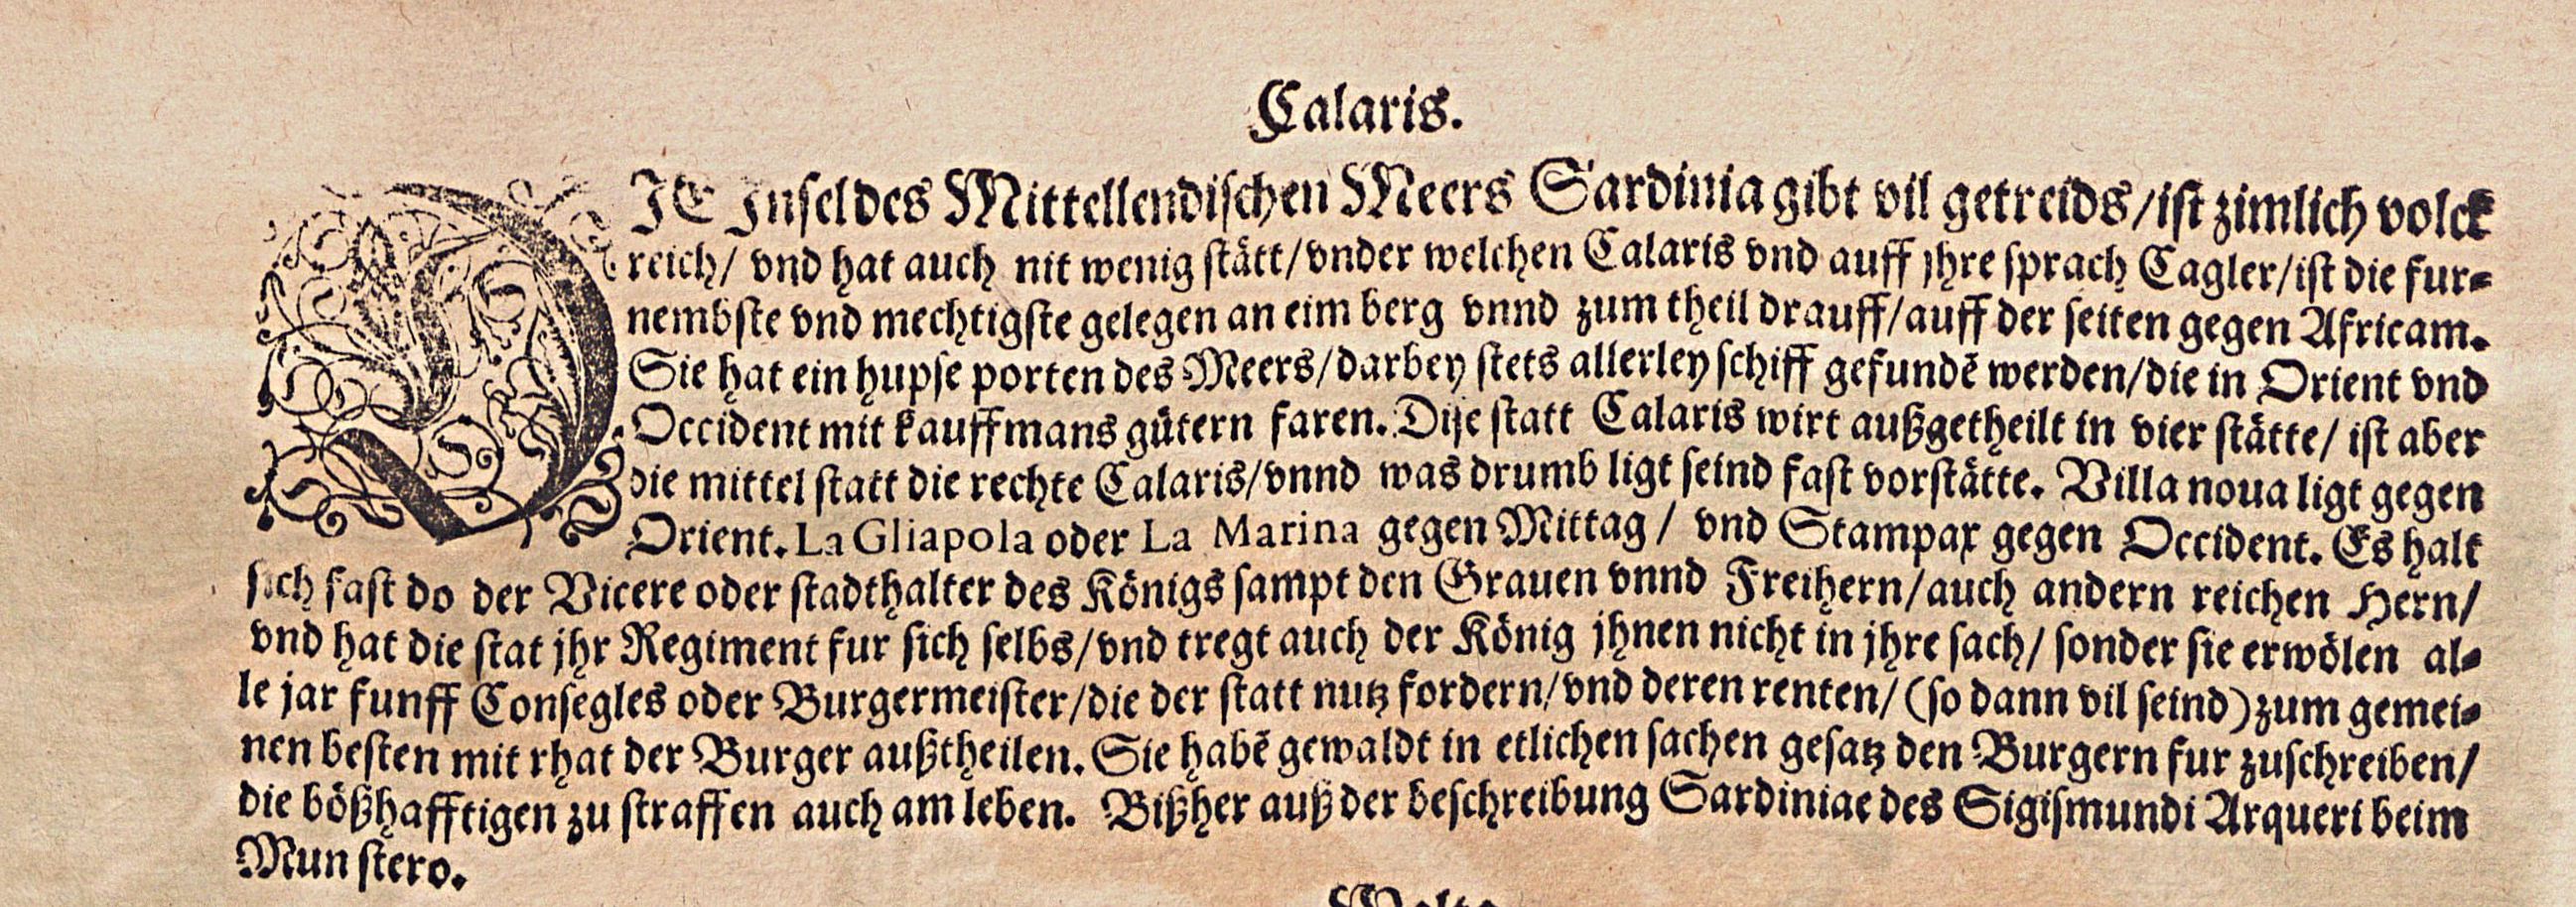 Calaris.
DIE Insel des Mittellendiſchen Meers Sardinia gibt vil getreids/iſt zimlich volck
reich/ vnd hat auch nit wenig ſtätt/vnder welchen Calaris vnd auff jhre ſprach Cagler/iſt die fur⸗
nembſte vnd mechtigſte gelegen an eim berg vnnd zum theil drauff/auff der ſeiten gegen Africam.
Sie hat ein hupſe porten des Meers/darbey ſtets allerley ſchiff gefundē werden/die in Orient vnd
Occident mit kauffmans gütern faren. Diſe ſtatt Calaris wirt außgetheilt in vier ſtätte/ iſt aber
die mittel ſtatt die rechte Calaris/vnnd was drumb ligt ſeind faſt vorſtätte. Villa noua ligt gegen
Orient. La Gliapola oder La Marina gegen Mittag/ vnd Stampax gegen Occident. Es halt
ſich faſt do der Vicere oder ſtadthalter des Königs ſampt den Grauen vnnd Freihern/auch andern reichen Hern/
vnd hat die ſtat jhr Regiment fur ſich ſelbs/vnd tregt auch der König jhnen nicht in jhre ſach/ ſonder ſie erwölen al⸗
le jar funff Conſegles oder Burgermeiſter/die der ſtatt nutz fordern/vnd deren renten/ (ſo dann vil ſeind) zum gemei⸗
nen beſten mit rhat der Burger außtheilen. Sie habē gewaldt in etlichen ſachen geſatz den Burgern fur zuſchreiben/
die bößhafftigen zu ſtraffen auch am leben. Bißher auß der beſchreibung Sardiniae des Sigiſmundi Arqueri beim
Munſtero.